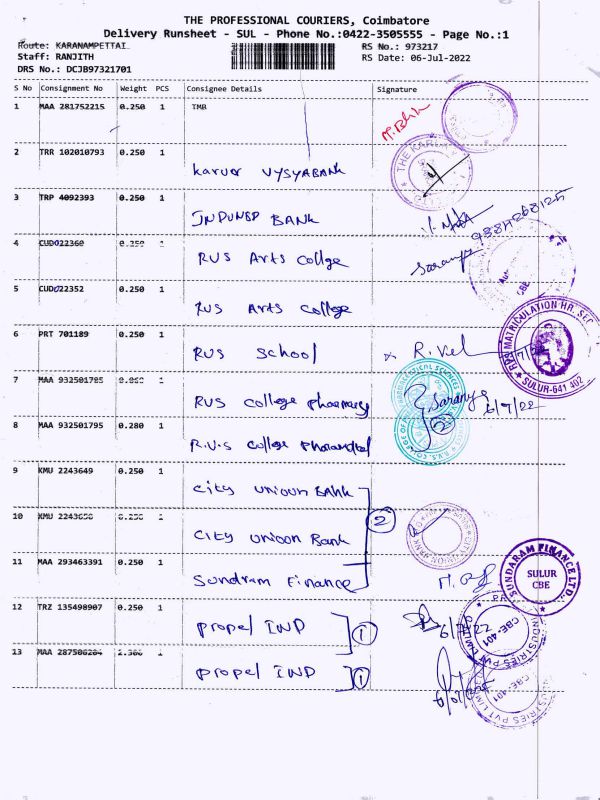 THE PROFESSIONAL COURIERS, Coimbatore
Delivery Runsheet - SUL - Phone No.:0422-3505555 - Page No.:1
Route: KARANAMPETTAI RS No.: 973217
Staff: RANJITH RS Date: 06-Jul-2022
DRS No.: DCJB97321701
S No Consignment No Weight PCS Consignee Details Signature
1 MAA 281752215 0.250 1 TMB
2 TRR 102010793 0.250 1
Karur VYSYABANK
3 TRP 4092393 0.250 1
INDUNSD BANK
9884268125
4 CUD022360 0.250 1
RVS Arts collge Saranya
5 CUD022352 0.250 1
RVS Arts college
6 PRT 701189 0.250 1
RVS School R. Vel
RVS MATRICULATION HR. SEC
SULUR-641 402
7 MAA 932501785 1
RVS college pharmacy Saranya 6/7/22
8 MAA 932501795 0.280 1
R.V.S college
9 KMU 2243649 0.250 1
city unioun BANK
10 KMU 1
2
city unioon Bank
CITY UNION BANK
11 MAA 293463391 0.250 1
Sundram Finance
SUNDARAM FINANCE LTD.
SULUR
CBE
12 TRZ 135498907 0.250 1
propel IND 1 6/7/22
CBE-401
INDUSTRIES PVT LIMITED
13 MAA 287506284 1
propel IND 1
CBE-401
INDUSTRIES PVT LIMITED